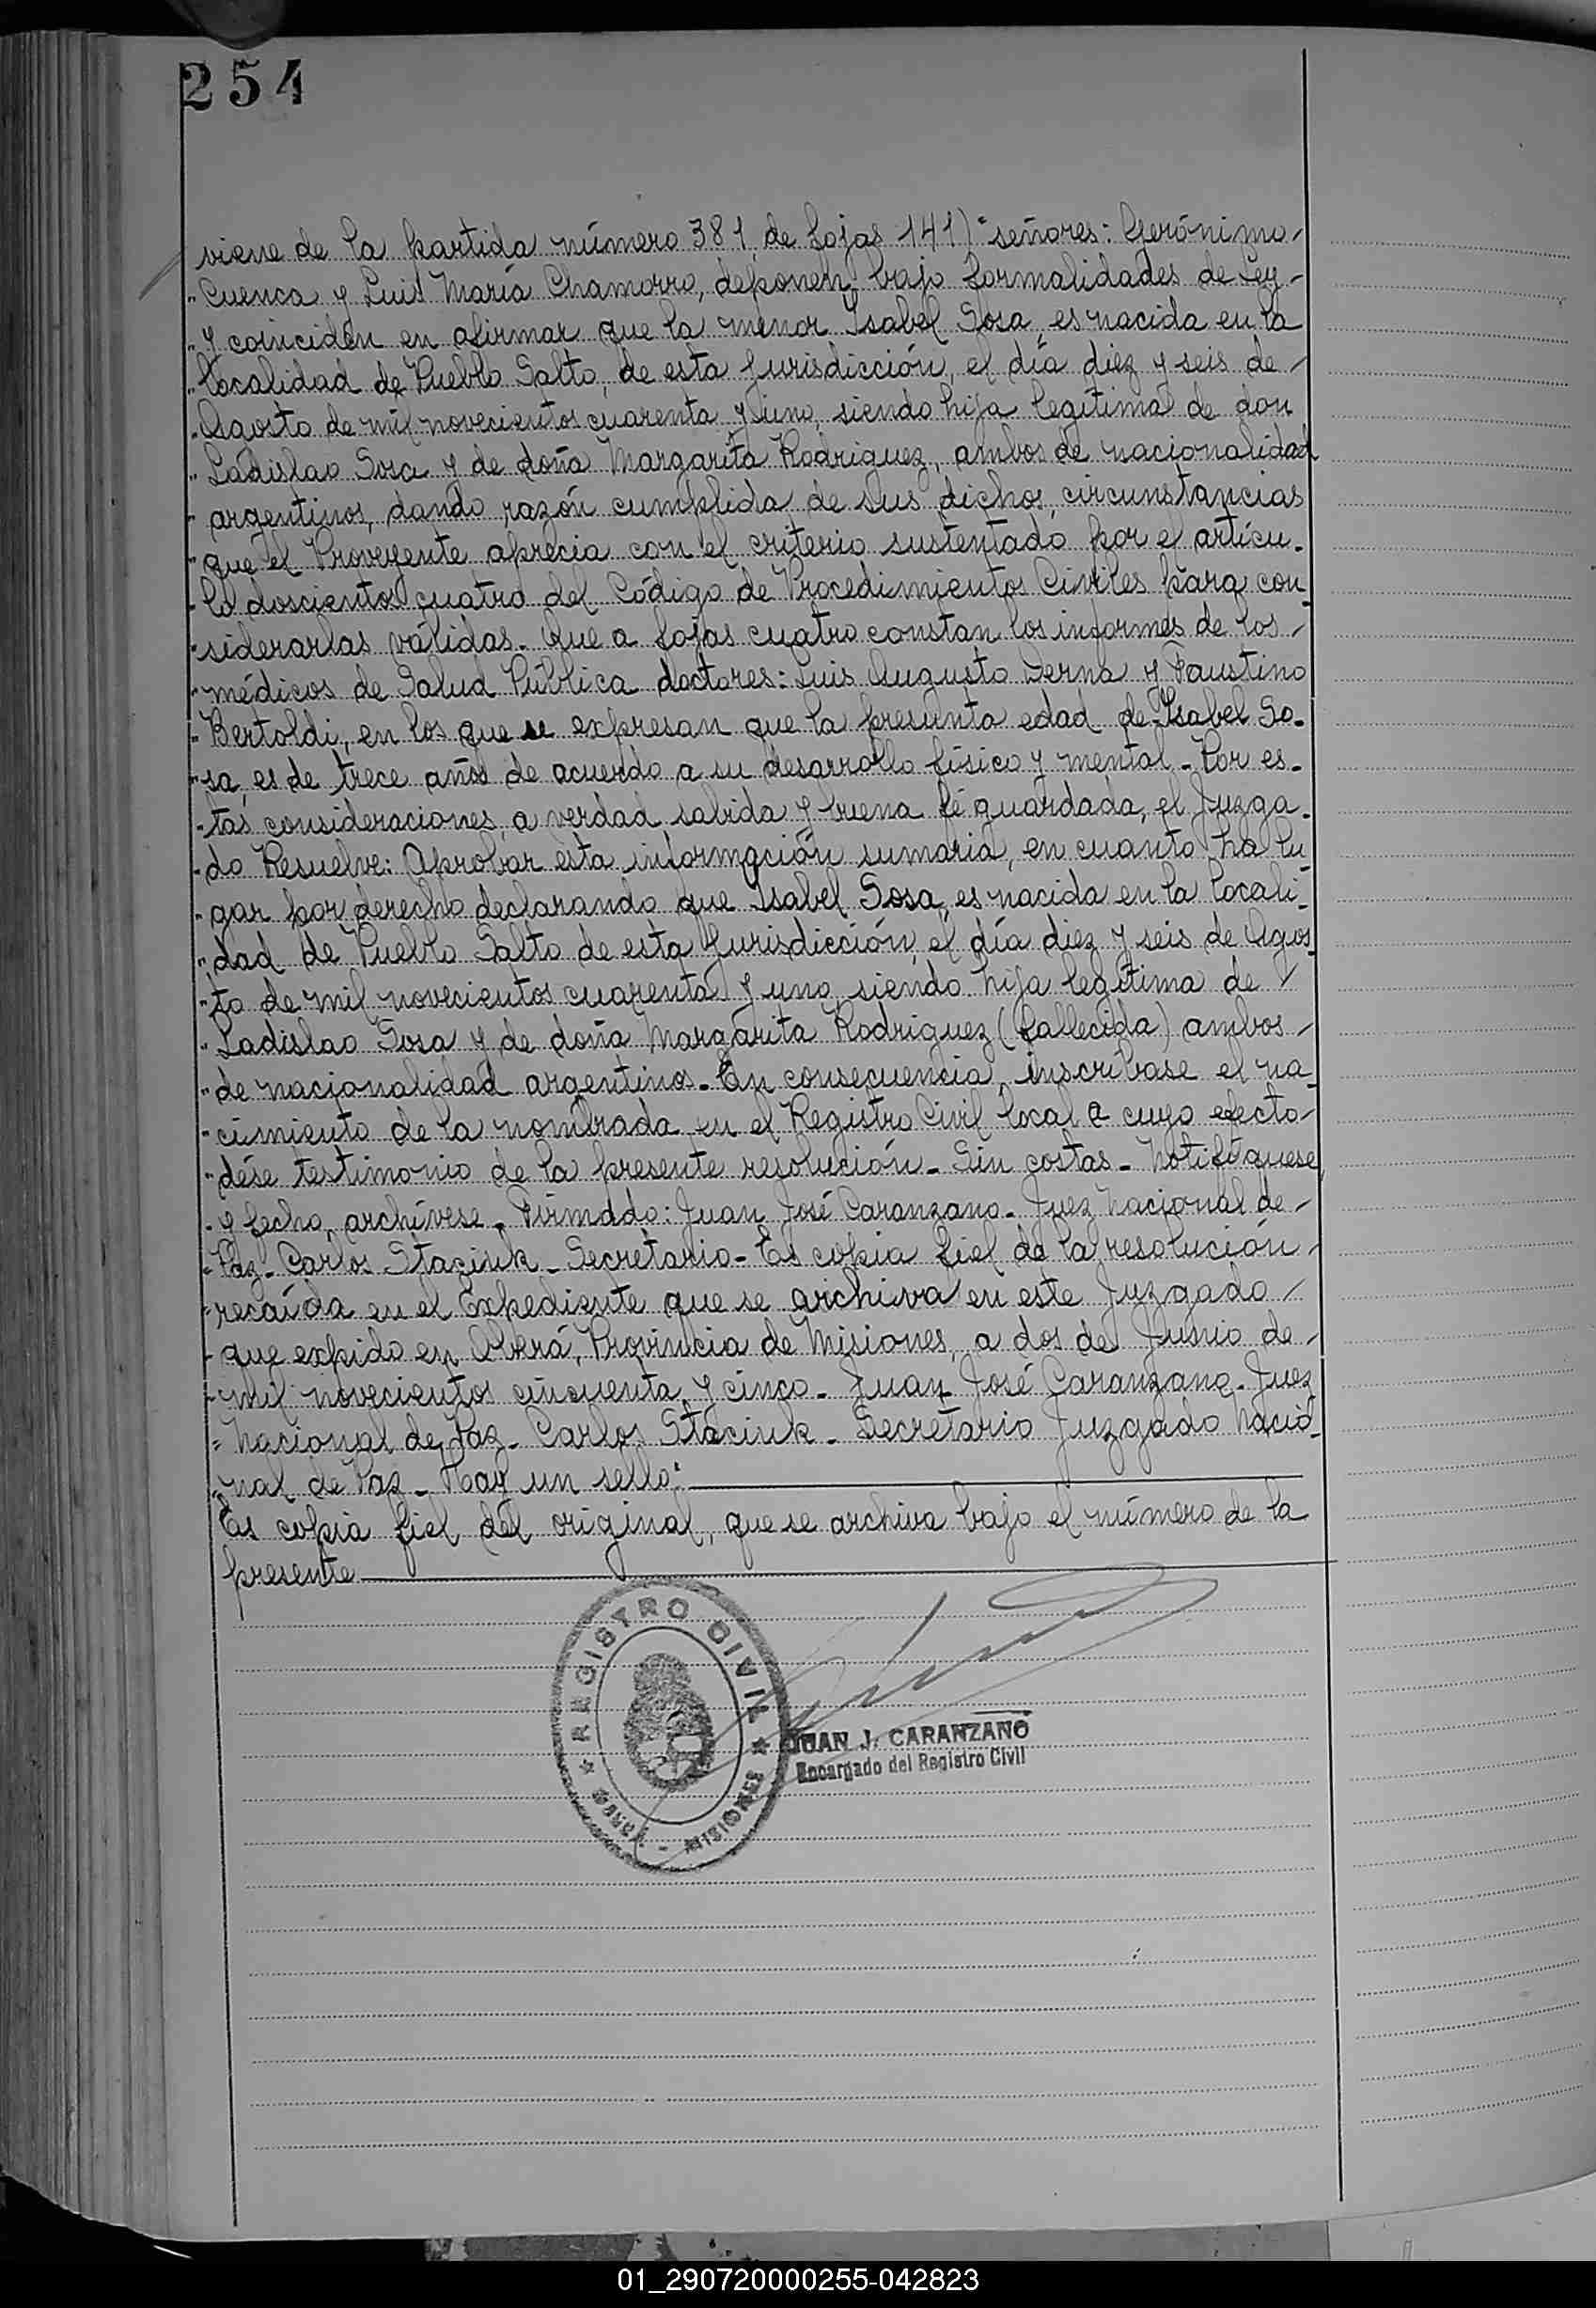 254
viene de la partida número 381, de fojas 141) "señores: Gerónimo
" Cuenca y Luis María Chamorro, deponen bajo formalidades de Ley-
" y coinciden en afirmar que la menor Isabel Sosa, es nacida en la
" localidad de Pueblo Salto, de esta Jurisdicción, el día diez y seis de /
" Agosto de mil novecientos cuarenta y uno, siendo hija legítima de don
" Ladislao Sosa y de doña Margarita Rodriguez, ambos de nacionalidad
" argentinos, dando razón cumplida de sus dichos, circunstancias
" que el Proveyente aprecia con el criterio sustentado por el artícu-
" lo doscientos cuatro del Código de Procedimientos Civiles para con
" siderarlas válidas. Que a fojas cuatro constan los informes de los /
" médicos de Salud Pública doctores: Luis Augusto Derna y Faustino
" Bertoldi, en los que se expresan que la presunta edad de Isabel So-
" sa, es de trece años de acuerdo a su desarrollo físico y mental - Por es-
" tas consideraciones a verdad sabida y buena fé guardada, el Juzga-
" do Resuelve: Aprobar esta información sumaria, en cuanto ha lu
" gar por derecho declarando que Isabel Sosa, es nacida en la locali-
" dad de Pueblo Salto de esta Jurisdicción, el día diez y seis de Agos
" to de mil novecientos cuarenta y uno, siendo hija legítima de /
" Ladislao Sosa y de doña Margarita Rodriguez (fallecida) ambos /
" de nacionalidad argentinos - En consecuencia, inscríbase el na-
" cimiento de la nombrada en el Registro Civil local a cuyo efecto /
" dése testimonio de la presente resolución - Sin costas - Notifíquese,
" y fecho, archívese - Firmado: Juan José Caranzano - Juez Nacional de /
" Paz - Carlos Staciuk - Secretario - Es copia fiel de la resolución /
" recaída en el Expediente que se archiva en este Juzgado /
" que expido en Oberá, Provincia de Misiones, a dos de Junio de /
" mil novecientos cincuenta y cinco - Juan José Caranzano - Juez
" Nacional de Paz - Carlos Staciuk - Secretario Juzgado Nacio-
" nal de Paz - Hay un sello"
Es copia fiel del original, que se archiva bajo el número de la
presente
REGISTRO CIVIL
OBERA - MISIONES
JUAN J. CARANZANO
Encargado del Registro Civil
01_290720000255-042823